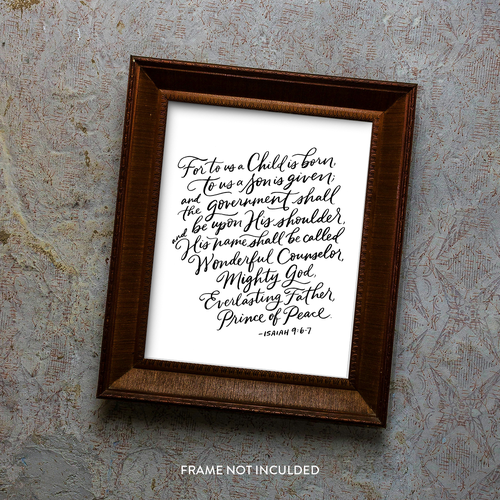 For to us a Child is born,
To us a Son is given;
and the government shall
be upon His shoulder,
and His name shall be called
Wonderful Counselor,
Mighty God,
Everlasting Father
Prince of Peace.
-ISAIAH 9:6-7
FRAME NOT INCULDED